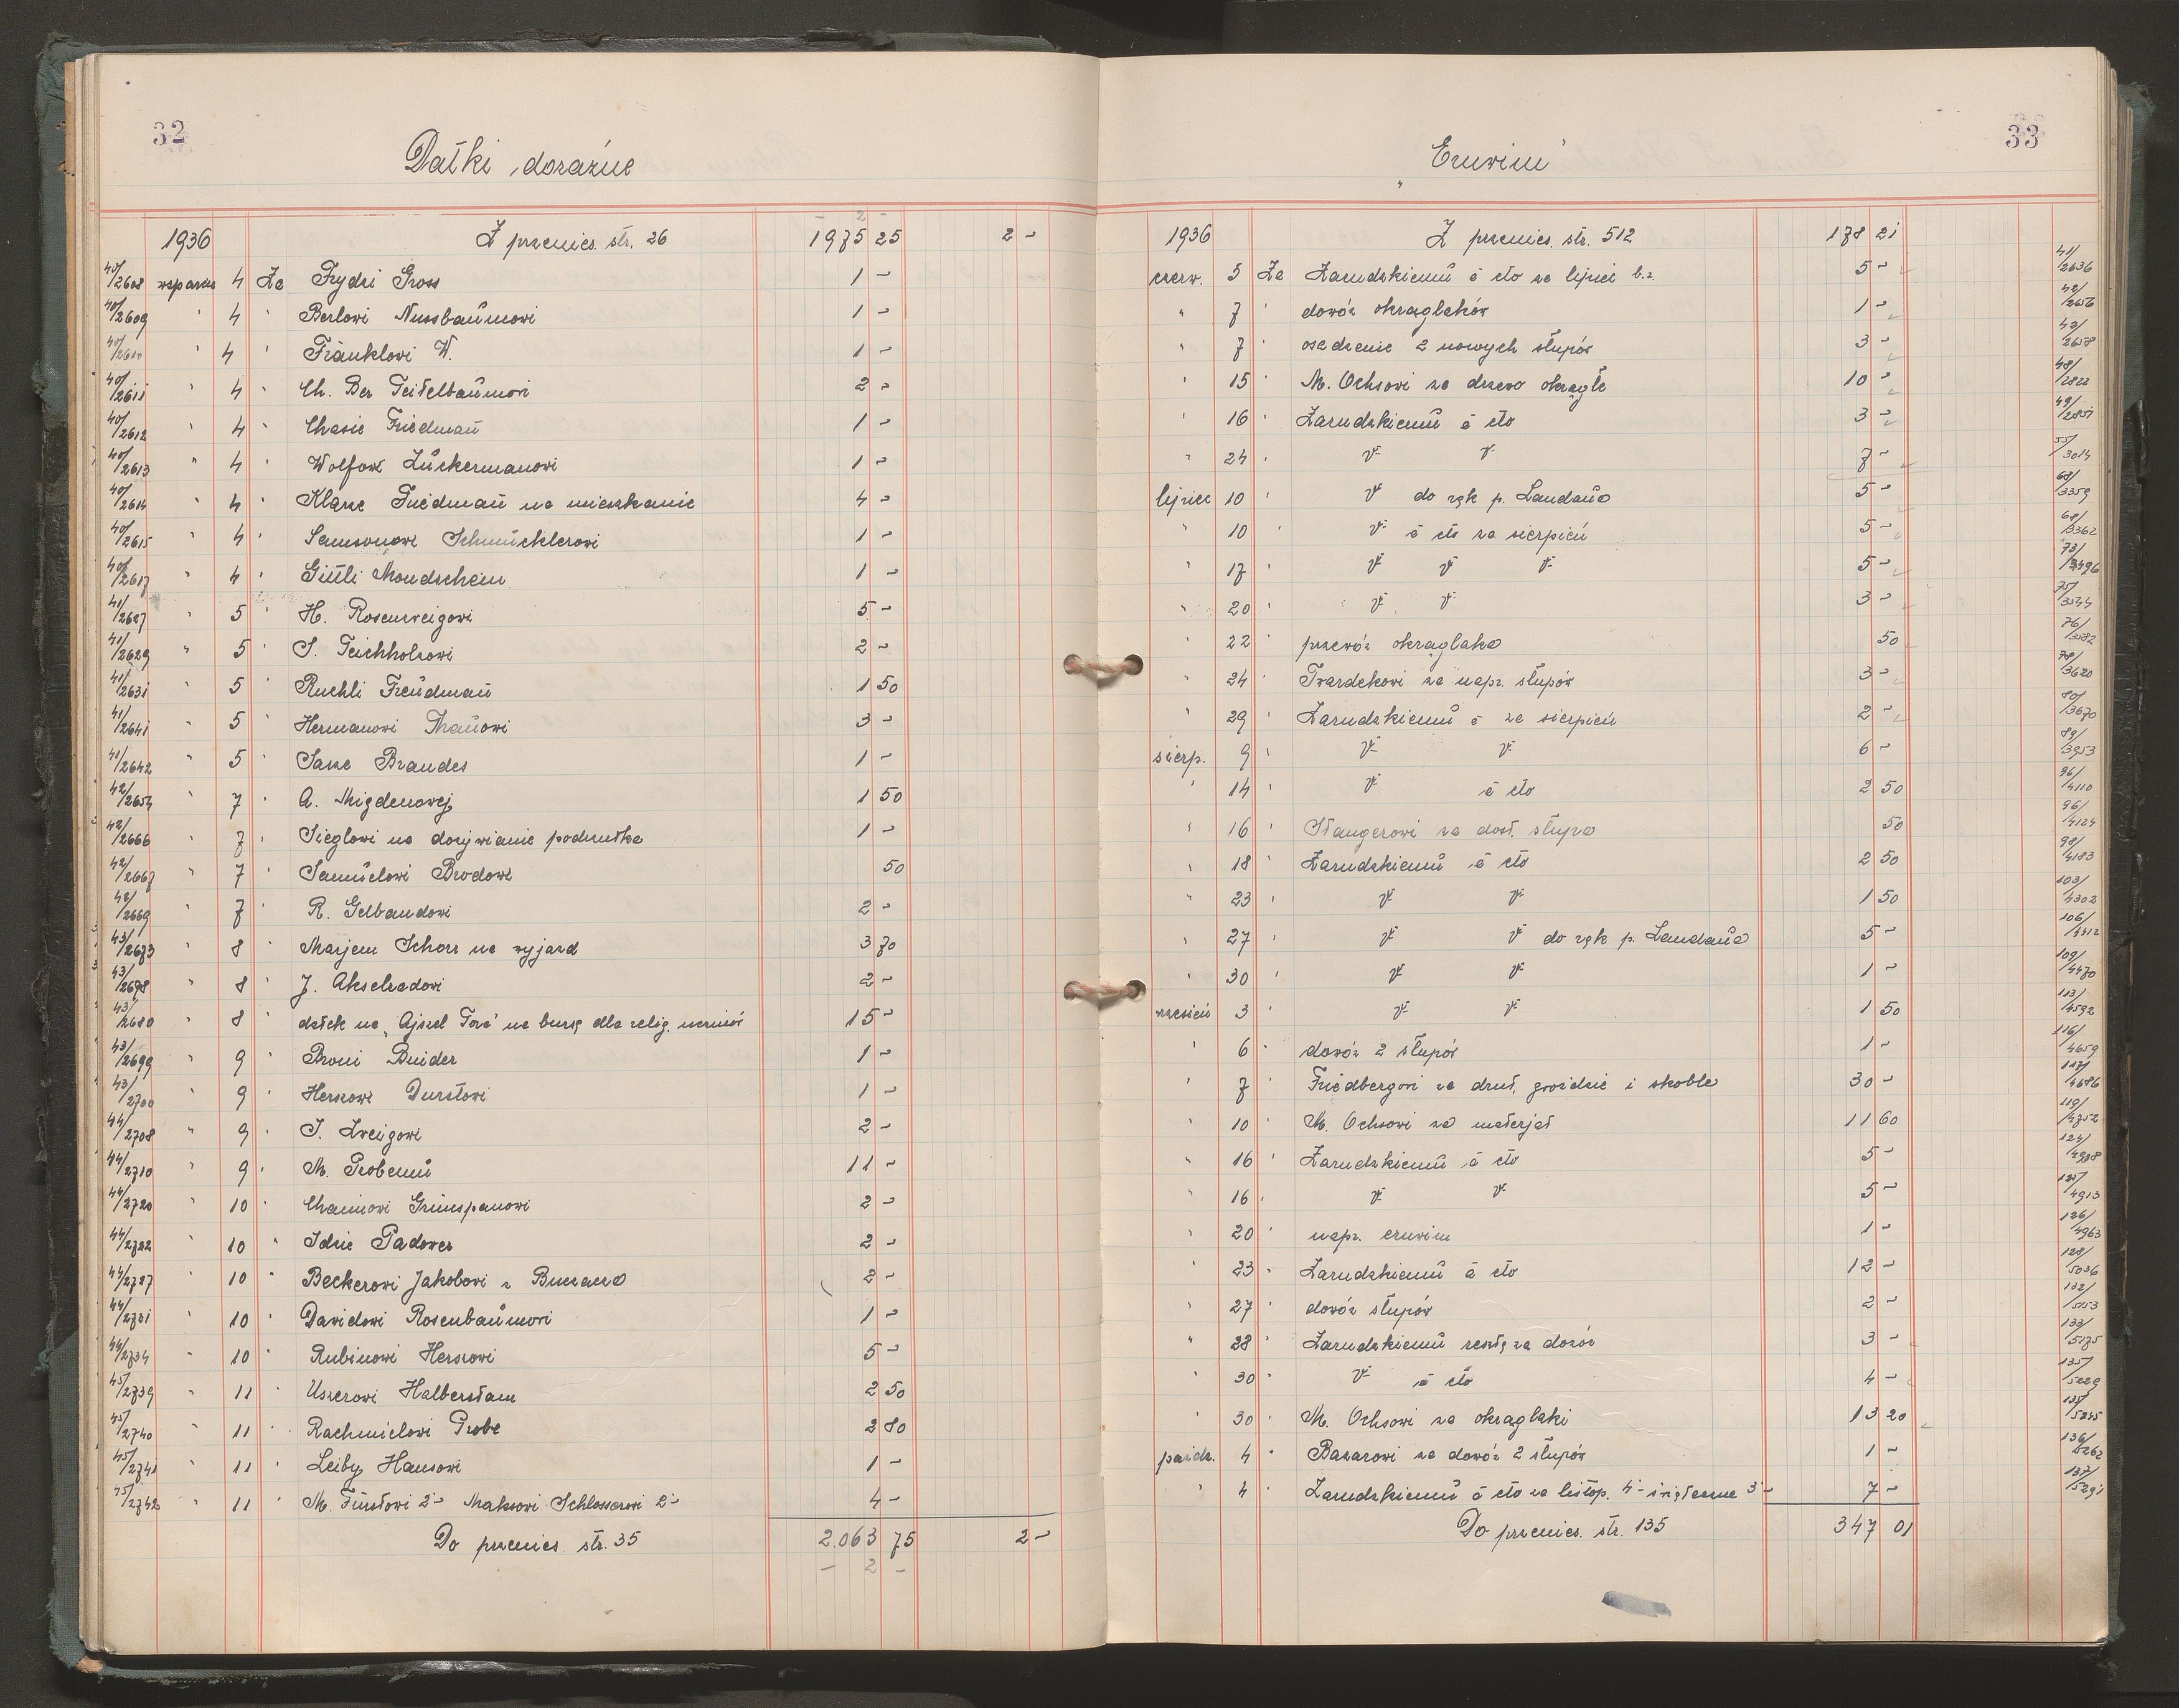 32
Datki doraźne
1936 Z przenies. str. 26 1975 25 2 -
40/2608 4 Za Frydzi Gross 1 -
40/2609 " 4 " Berlowi Nussbaŭmowi 1 -
40/2610 " 4 " Fränklowi W. 1 -
40/2611 4 " Ch. Ber Teitelbaŭmowi 2 -
40/2612 " 4 " Chasie Friedmaŭ 1 -
40/2613 " 4 " Wolfowi Zŭckermanowi 1 -
40/2614 " 4 " Klarze Friedmaŭ na mieszkanie 4 -
40/2615 " 4 " Samsonowi Schmŭcklerowi 1 -
40/2617 " 4 " Gittli Mondschein 1 -
41/2627 " 5 " H. Rosenzweigowi 5 -
41/2629 " 5 " S. Teichholzowi 2 -
41/2631 " 5 " Ruchli Freŭdmaŭ 1 50
41/2641 " 5 " Hermanowi Thaŭowi 3 -
41/2642 " 5 " Sarze Brandes 1 -
42/2654 " 7 " A. Migdenowej 1 50
42/2666 " 7 " Sieglowi na dożywianie podrzutka 1 -
42/2667 " 7 " Samŭelowi Brodowi 50
42/2669 " 7 " R. Gelbandowi 2 -
43/2673 " 8 " Marjem Schorr na wyjazd 3 70
43/2678 " 8 " J. Akselradowi 2 -
43/2680 " 8 " datek na „Ajszel Tora" na bursę dla relig. uczniów 15 -
43/2699 " 9 " Broni Buider 1 -
43/2700 " 9 " Herszowi Durstowi 1 -
44/2708 " 9 " I. Zweigowi 2 -
44/2710 " 9 " M. Probemŭ 11 -
44/2720 " 10 " Chaimowi Grünspanowi 2 -
44/2722 " 10 " Idzie Padower 2 -
44/2727 " 10 " Beckerowi Jakobowi z 2 -
44/2731 " 10 " Dawidowi Rosenbaŭmowi 1 -
44/2734 " 10 " Rubinowi Herszowi 5 -
45/2739 " 11 " Uszerowi Halberstam 2 50
45/2740 " 11 " Rachmielowi Probe 2 80
45/2741 " 11 " Leiby Hausowi 1 -
45/2742 " 11 " M. Fürstowi 2 - Maksowi Schlosserowi 2 - 4 -
Do przenies. str. 35 2.063 75 2 -
- 2 -
33
„Eruwim"
1936 Z przenies. str. 512 178 21
czerw. 5 Za Zarudzkiemŭ à cto za lipiec b.r. 5 - 41/2636
" 7 " dowóz okrąglaków 1 - 42/2656
" 7 " osadzenie 2 nowych słupów 3 - 42/2658
" 15 " M. Ochsowi za drzewo okrągłe 10 - 48/2822
" 16 " Zarudzkiemŭ à cto 3 - 49/2851
" 24 " " " 7 - 55/3014
lipiec 10 " " do rąk p. Landaŭa 5 - 68/3359
" 10 " " à cto za sierpień 5 - 68/3362
" 17 " " " " 5 - 73/3496
" 20 " " " 3 - 75/3544
" 22 " przewóz okrąglaka 50 76/3582
" 24 " Twardekowi za napr. słupów 3 - 78/3620
" 29 " Zarudzkiemŭ à za sierpień 2 - 80/3670
sierp. 9 " " " 6 - 89/3953
" 14 " " à cto 2 50 96/4110
" 16 " Stangerowi za dost. słupa 50 96/4124
" 18 " Zarudzkiemŭ à cto 2 50 98/4183
" 23 " " " 1 50 103/4302
" 27 " " " do rąk p. Landaŭa 5 - 106/4412
" 30 " " " 1 - 109/4470
wrzesień 3 " " " 1 50 113/4592
" 6 " dowóz 2 słupów 1 - 116/4659
" 7 " Friedbergowi za drut, gwoździe i skoble 30 - 117/4686
" 10 " M. Ochsowi za materjał 11 60 119/4752
" 16 " Zarudzkiemŭ à cto 5 - 124/4908
" 16 " " " 5 - 125/4913
" 20 " napr. eruwim 1 - 126/4963
" 23 " Zarudzkiemŭ à cto 12 - 128/5036
" 27 " dowóz słupów 2 - 132/5153
" 28 " Zarudzkiemŭ resztę za dozór 3 - 133/5175
" 30 " " à cto 4 - 135/5229
" 30 " M. Ochsowi za okrąglaki 13 20 135/5245
paźdz. 4 " Bazarowi za dowóz 2 słupów 1 - 136/5262
" 4 " Zarudzkiemŭ à cto za listop. 4 - świąteczne 3 - 7 - 137/5291
Do przenies. str. 135 347 01